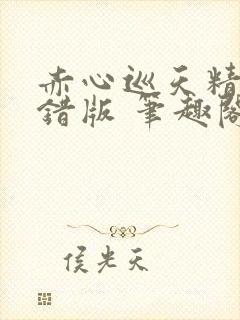 赤心巡天精
錯版 筆趣閣
侯光天